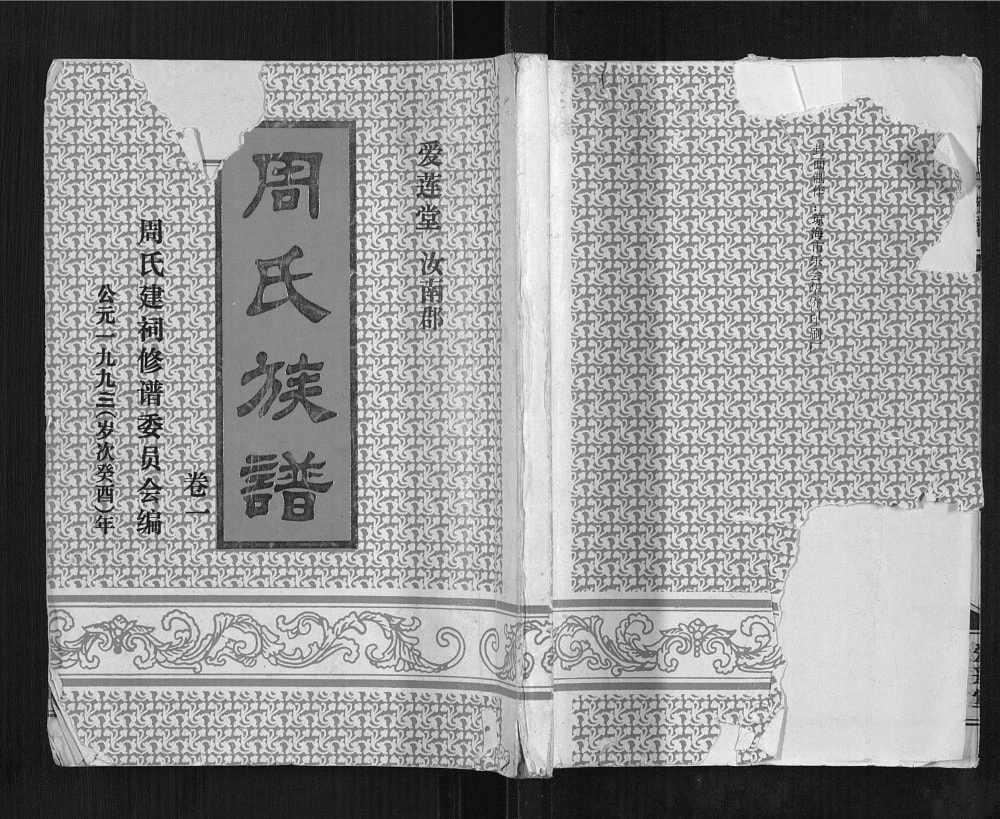 爱莲堂 汝南郡
周氏族譜
卷一
周氏建祠修谱委员会编
公元一九九三(岁次癸酉)年
封面制作:琼海市